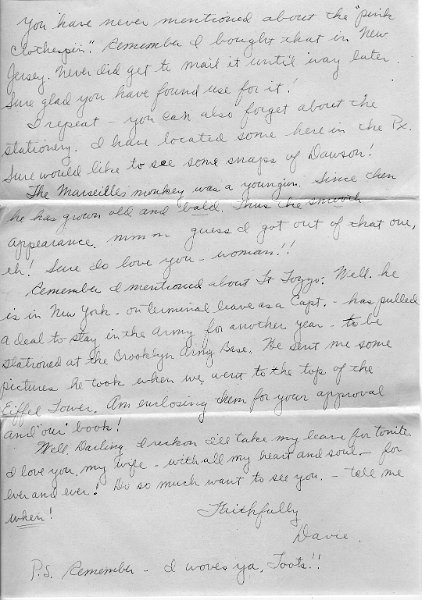 You have never mentioned about the "pink
clothespin". Remember I bought that in New
Jersey. Never did get to mail it until way later.
Sure glad you have found use for it!
I repeat - you can also forget about the
stationery. I have located some here in the Px.
Sure would like to see some snaps of Dawson!
The Marseilles monkey was a youngun. Since then
he has grown old and bald. Thus the smooth
appearance. mmm guess I got out of that one,
eh! Sure do love you - woman!!
Remember I mentioned about Lt Tozzo. Well, he
is in New York - on terminal leave as a Capt. - has pulled
a deal to stay in the Army for another year - to be
stationed at the Brooklyn Army Base. He sent me some
pictures he took when we went to the top of the
Eiffel Tower. Am enclosing them for your approval
and "our" book!
Well, Darling I reckon I'll take my leave for tonite.
I love you, my wife - with all my heart and soul - for
ever and ever! Do so much want to see you. - tell me
when!
Faithfully
Dave.
P.S. Remember - I woves ya, Toots!!